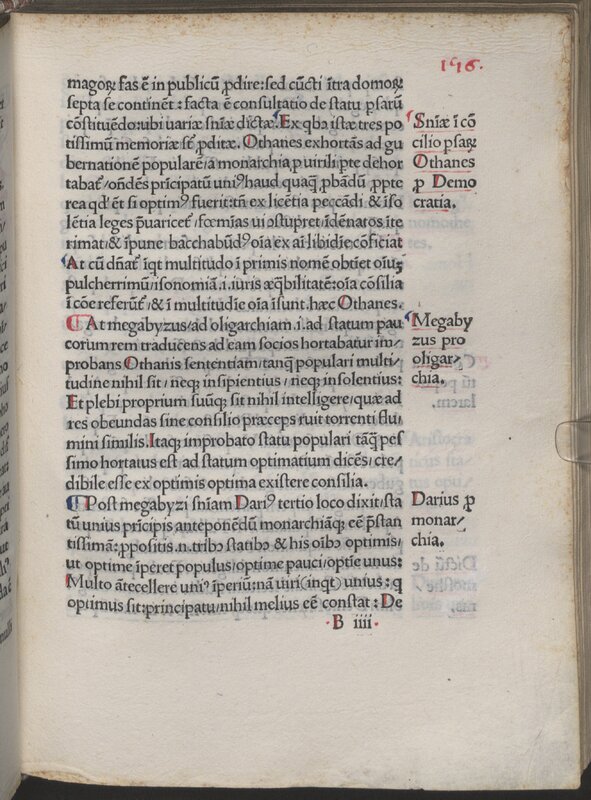 1516.
magoꝝ fas ē in publicū ꝓdire: sed cūcti ītra domoꝝ
septa se continēt: facta ē consultatio de statu ꝑsarū
cōstituēdo: ubi uariæ sn̄iæ dictæ. Ex qbꝰ istæ tres po
tissimū memoriæ sūt ꝓditæ. Othanes exhortās ad gu
bernationē popularē/a monarchia ꝓ uirili ꝑte dehor
tabat᷑/on̄dēs prīcipatū uniꝰ haud quaqͣ ꝓbādū ꝓpte
rea qd' et si optimꝰ fuerit: tn̄ ex licētia peccādi & īso
lētia leges p̄uaricet᷑/fœmīas ui ↄstupret īdēnatos īte
rimat/& īpune bacchabūdꝰ oīa ex aī libidīe cōficiat
At cū dn̄at᷑ īqt multitudo ī primis nomē obtīet oīuꝫ
pulcherrimū/isonomīā .i. iuris æqbilitatē: oīa cōsilia
ī cōe referūt᷑/& ī multitudīe oīa īsunt. hæc Othanes.
¶ At megabyzus/ad oligarchiam .i. ad statum pau
corum rem traducens ad eam socios hortabatur im⸗
probans Othanis sententiam/tanqͣ populari multi/
tudine nihil sit/neqꝫ insipientius/neqꝫ insolentius:
Et plebi proprium suūqꝫ sit nihil intelligere/quæ ad
res obeundas sine consilio præceps ruit torrenti flu/
mini similis. Itaqꝫ improbato statu populari tāqͣ pes
simo hortatus est ad statum optimatium dicēs/cre/
dibile esse ex optimis optima existere consilia.
¶ Post megabyzi sn̄iam Dariꝰ tertio loco dixit/sta
tū unius prīcipis anteponēdū monarchiāqꝫ eē p̄stan
tissimā: ꝓpositis .n. tribꝰ statibꝰ & his oībꝰ optimis/
ut optime īperet populus/optime pauci/optīe unus:
Multo ātecellere uniꝰ īperiū: nā uiri (inqt) unius: q
optimus sit: principatu/nihil melius eē constat: De
B iiii.
Sn̄iæ ī cō
cilio ꝑsaꝝ
Othanes
ꝓ Demo
cratia.
Megaby
zus pro
oligar⸗
chia.
Darius ꝓ
monar/
chia.